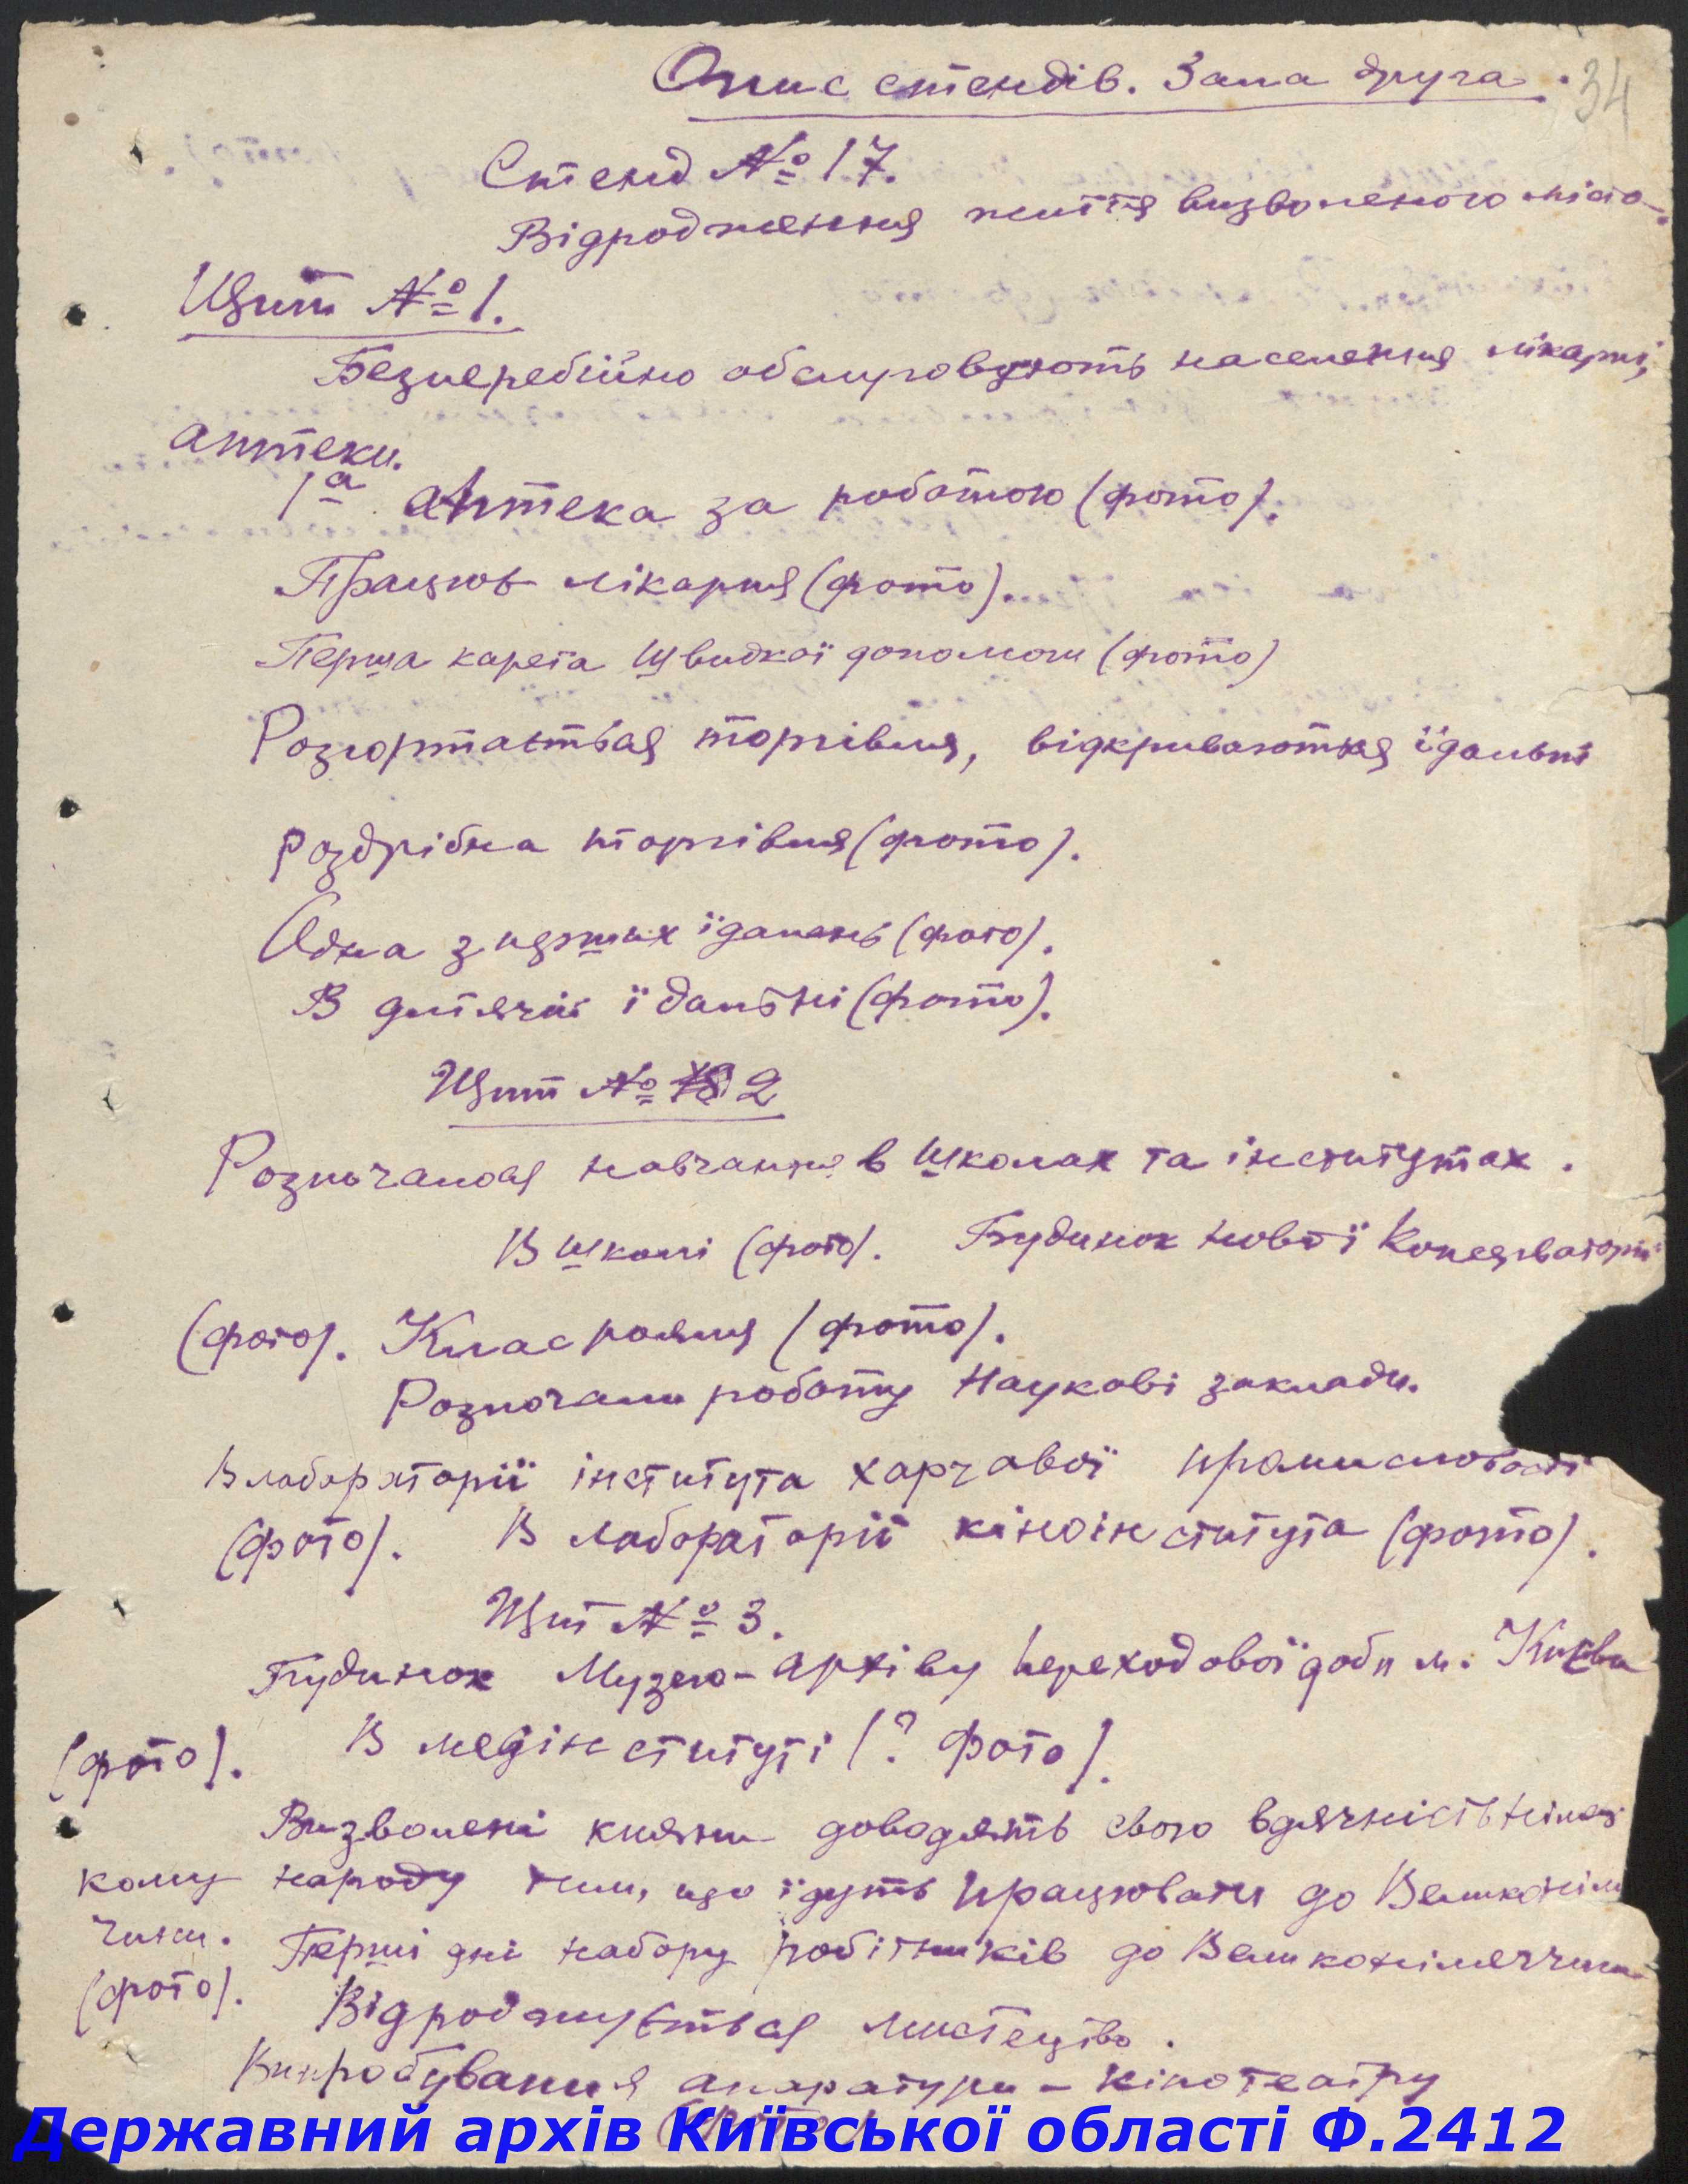 Опис стендів. Зала друга.
34
Стенд № 17.
Відродження життя визволеного міста.
Щит № 1.
Безперебійно обслуговують населення лікарні,
аптеки.
1а аптека за роботою (фото).
Працює лікарня (фото).
Перша карета швидкої допомоги (фото)
Розгортається торгівля, відкриваються їдальні
Роздрібна торгівля (фото).
Одна з перших їдалень (фото).
В дитячій їдальні (фото).
Щит № 2
Розпочалося навчання в школах та інститутах.
В школі (фото). Будинок нової Консерваторії
(фото). Клас рояля (фото).
Розпочали роботу Наукові заклади.
В лабораторії інститута харчової промисловості
(фото). В лабораторії кіноінститута (фото).
Щит № 3.
Будинок Музею-Архіву Переходової доби м. Києва
(фото). В медінституті (? Фото).
Визволені кияни доводять свою вдячність німець
кому народу тим, що їдуть працювати до Великонімеч
чини. Перші дні набору робітників до Великонімеччини
(фото). Відроджується мистецтво.
Випробування апаратури - кінотеатру
(фото).
Державний архів Київської області Ф.2412